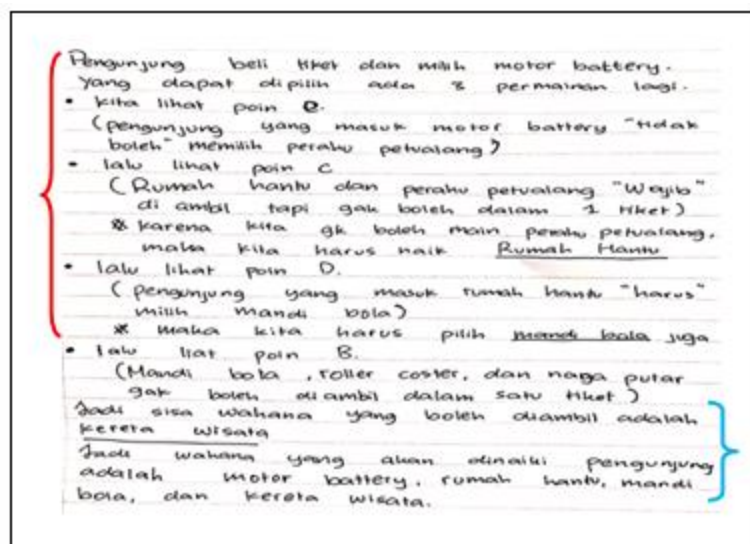 Pengunjung beli tiket dan milih motor battery.
Yang dapat dipilih ada 3 permainan lagi.
• kita lihat poin e.
(pengunjung yang masuk motor battery "tidak
boleh" memilih perahu petualang)
• lalu lihat poin C
(Rumah hantu dan perahu petualang "Wajib"
di ambil tapi gak boleh dalam 1 tiket)
* karena kita gk boleh main perahu petualang,
maka kita harus naik Rumah Hantu
• lalu lihat poin D.
(pengunjung yang masuk rumah hantu "harus"
milih mandi bola)
* maka kita harus pilih mandi bola juga
• lalu liat poin B.
(Mandi bola, roller coster, dan naga putar
gak boleh di ambil dalam satu tiket)
Jadi sisa wahana yang boleh diambil adalah
kereta wisata
Jadi wahana yang akan dinaiki pengunjung
adalah motor battery, rumah hantu, mandi
bola, dan kereta wisata.